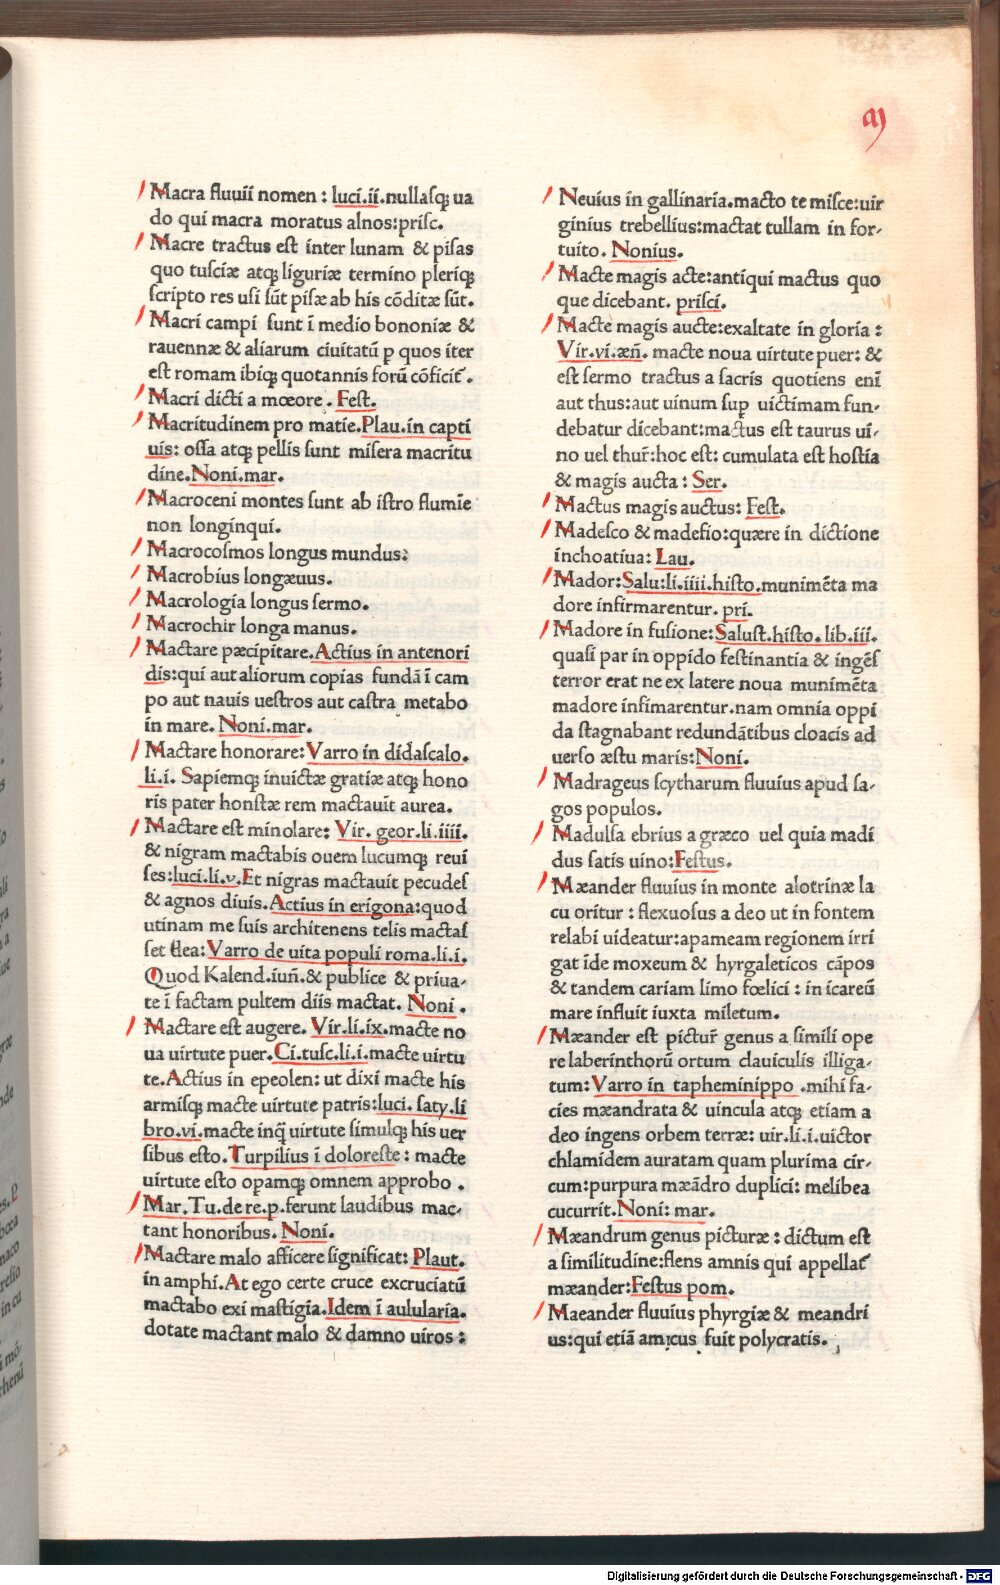 M
Macra fluuii nomen : luci.ii.nullasꝗ ua
do qui macra moratus alnos:prisc.
Macre tractus est inter lunam & pisas
quo tusciæ atꝗ liguriæ termino pleriꝗ
scripto res usi sūt pisæ ab his cōditæ sūt.
Macri campi sunt ī medio bononiæ &
rauennæ & aliarum ciuitatū p quos iter
est romam ibiꝗ quotannis forū cōficit̄.
Macri dicti a mœore . Fest.
Macritudinem pro matie.Plau.in capti
uis: ossa atꝗ pellis sunt misera macritu
dine.Noni.mar.
Macroceni montes sunt ab istro flumīe
non longinqui.
Macrocosmos longus mundus:
Macrobius longæuus.
Macrologia longus sermo.
Macrochir longa manus.
Mactare pæcipitare.Actius in antenori
dis:qui aut aliorum copias fundā ī cam
po aut nauis uestros aut castra metabo
in mare. Noni.mar.
Mactare honorare: Varro in didascalo.
li.i. Sapiemꝗ inuictæ gratiæ atꝗ hono
ris pater honstæ rem mactauit aurea.
Mactare est minolare: Vir. geor.li.iiii.
& nigram mactabis ouem lucumꝗ reui
ses:luci.li.v.Et nigras mactauit pecudes
& agnos diuis.Actius in erigona:quod
utinam me suis architenens telis mactas
set dea:Varro de uita populi roma.li.i.
Quod Kalend.iuñ.& publice & priua-
te ī factam pultem diis mactat. Noni .
Mactare est augere. Vir.li.ix.macte no
ua uirtute puer.Ci.tusc.li.i.macte uirtu
te.Actius in epeolen: ut dixi macte his
armisꝗ macte uirtute patris:luci. saty.li
bro.vi.macte inq̄ uirtute simulꝗ his uer
sibus esto. Turpilius ī doloreste : macte
uirtute esto opamꝗ omnem approbo .
Mar.Tu.de re.p.ferunt laudibus mac-
tant honoribus. Noni.
Mactare malo afficere significat: Plaut.
in amphi.At ego certe cruce excruciatū
mactabo exi mastigia.Idem ī aulularia.
dotate mactant malo & damno uiros :
Neuius in gallinaria.macto te misce:uir
ginius trebellius:mactat tullam in for-
tuito. Nonius.
Macte magis acte:antiqui mactus quo
que dicebant. prisci.
Macte magis aucte:exaltate in gloria :
Vir.vi.æñ. macte noua uirtute puer: &
est sermo tractus a sacris quotiens enī
aut thus:aut uinum sup uictimam fun-
debatur dicebant:mactus est taurus ui-
no uel thur̄:hoc est: cumulata est hostia
& magis aucta : Ser.
Mactus magis auctus: Fest.
Madesco & madefio:quære in dictione
inchoatiua: Lau.
Mador:Salu:li.iiii.histo.munimēta ma
dore infirmarentur. pri.
Madore in fusione:Salust.histo. lib.iii.
quasi par in oppido festinantia & ingēs
terror erat ne ex latere noua munimēta
madore infimarentur.nam omnia oppi
da stagnabant redundātibus cloacis ad
uerso æstu maris:Noni.
Madrageus scytharum fluuius apud sa-
gos populos.
Madulsa ebrius a græco uel quia madi
dus satis uino:Festus.
Mæander fluuius in monte alotrinæ la
cu oritur : flexuosus a deo ut in fontem
relabi uideatur:apameam regionem irri
gat īde moxeum & hyrgaleticos cāpos
& tandem cariam limo fœlici : in icareū
mare influit iuxta miletum.
Mæander est pictur̄ genus a simili ope
re laberinthorū ortum clauiculis illiga-
tum:Varro in tapheminippo .mihi fa-
cies mæandrata & uincula atꝗ etiam a
deo ingens orbem terræ: uir.li.i.uictor
chlamidem auratam quam plurima cir-
cum:purpura mæādro duplici: melibea
cucurrit.Noni: mar.
Mæandrum genus picturæ : dictum est
a similitudine:flens amnis qui appellat̄
mæander:Festus pom.
Maeander fluuius phyrgiæ & meandri
us:qui etiā amicus fuit polycratis.
Digitalisierung gefördert durch die Deutsche Forschungsgemeinschaft - DFG